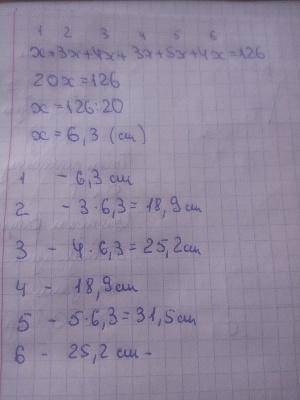 1 2 3 4 5 6
x+3x+4x+3x+5x+4x=126
20x=126
x=126:20
x=6,3 (cm)
1 - 6,3 cm
2 - 3·6,3=18,9cm
3 - 4·6,3=25,2cm
4 - 18,9cm
5 - 5·6,3=31,5cm
6 - 25,2 cm -